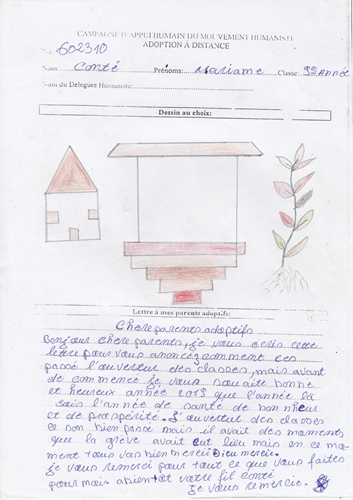 CAMPAGNE D'APPUI HUMAIN DU MOUVEMENT HUMANISTE
ADOPTION À DISTANCE
602310
Nom Conté Prénoms: Mariame Classe: 9e Année
Nom du Délégué Humaniste:
Dessin au choix:
Lettre à mes parents adoptifs:
Chere parents adoptifs
Bonjour chere parents, je vous écris cette
lettre pour vous anoncé comment ces
passé l'ouverteur des classes, mais avant
de commence je vous souaite bonne
et heureux année 2013 que l'année là
sois l'année de santé de bonheur
et de prospérité. L'ouverteur des classes
ce son bien passé mais il avait des moments
que la grève avait eut lieu mais en ce mo-
ment tous va bien merci Dieu merci.
je vous remerci pour tout ce que vous faites
pour moi. abientot votre fil conté
Je vous remercie.